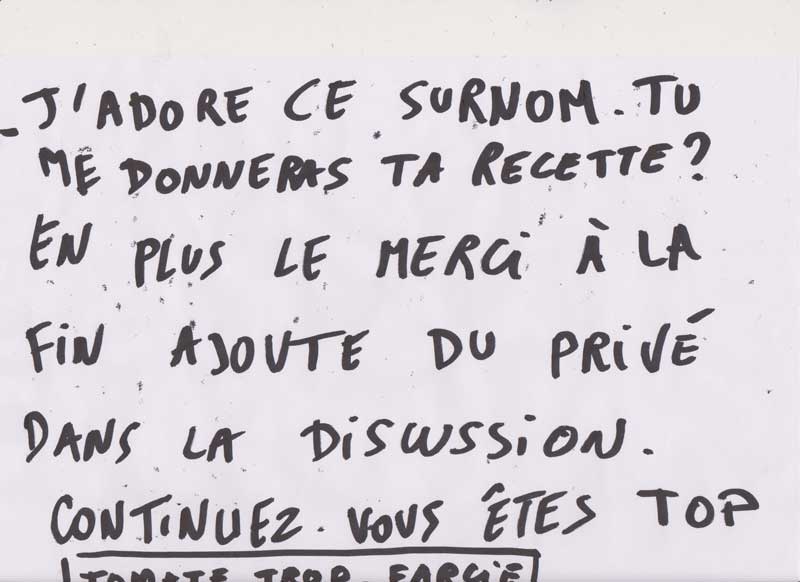 - J'ADORE CE SURNOM. TU
ME DONNERAS TA RECETTE?
EN PLUS LE MERCI À LA
FIN AJOUTE DU PRIVÉ
DANS LA DISCUSSION.
CONTINUEZ. VOUS ÊTES TOP
TOMATE TROP FARCIE